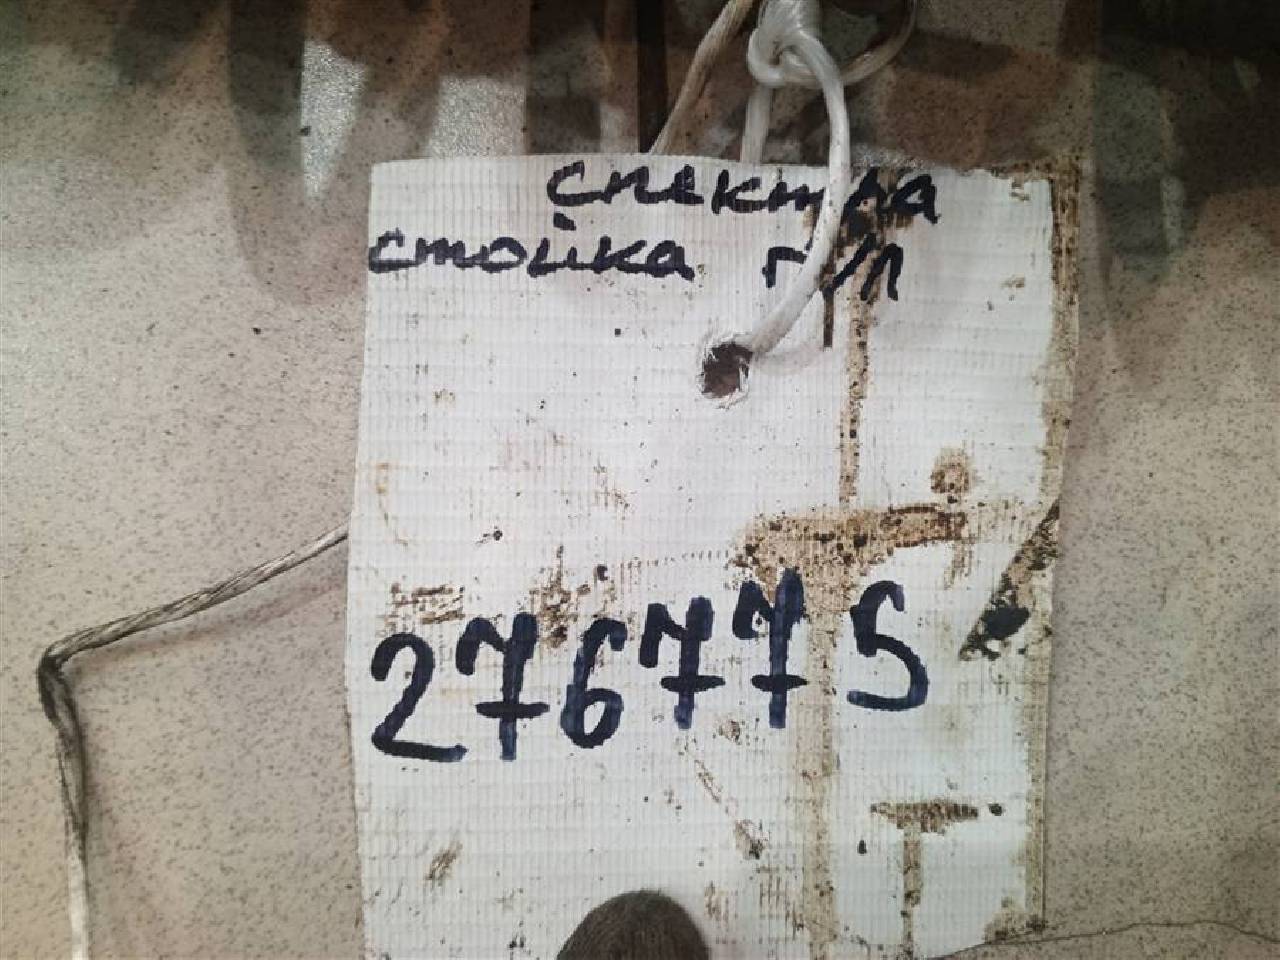 спектра
стойка п/л
276775